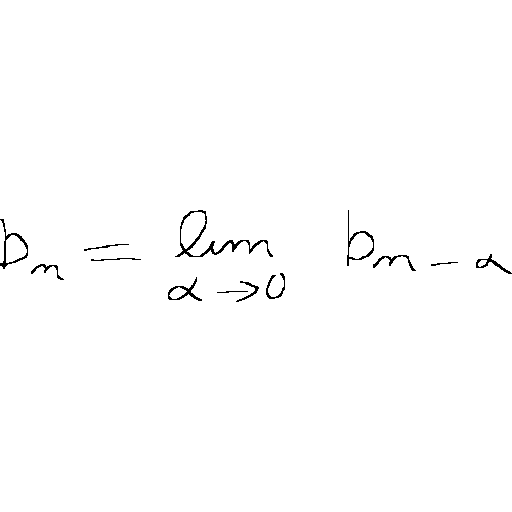 b_n = \lim_{\alpha \to 0} b_{n-\alpha}